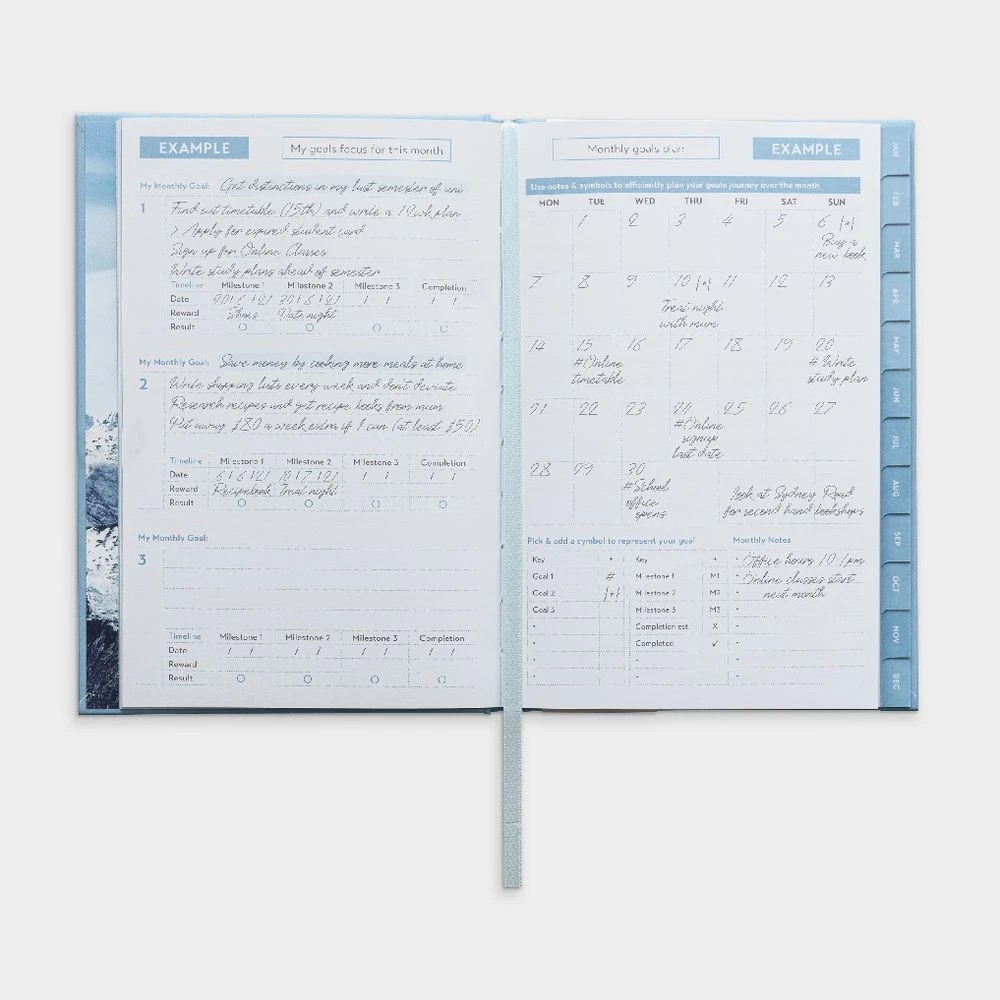 EXAMPLE
My goals focus for this month
My Monthly Goal: Get distinctions in my last semester of uni
1 Find out timetable (15th) and write a 19wk plan
> Apply for expired student card
Sign up for Online Classes
Write study plans ahead of semester
Timeline Milestone 1 Milestone 2 Milestone 3 Completion
Date / / / /
Reward Shoes night
Result
My Monthly Goal: Save money by cooking more meals at home
2 Write shopping lists every week and don't deviate
Research recipes and get recipe books from mum
Put away $80 a week extra if I can (at least $50)
Timeline Milestone 1 Milestone 2 Milestone 3 Completion
Date / / / /
Reward Recipebook Treat night
Result
My Monthly Goal:
3
Timeline Milestone 1 Milestone 2 Milestone 3 Completion
Date / / / / / / / /
Reward
Result
Monthly goals plan
EXAMPLE
Use notes & symbols to efficiently plan your goals journey over the month
MON TUE WED THU FRI SAT SUN
1 2 3 4 5 6 {*}
Buy a
new book
7 8 9 10 {*} 11 12 13
Treat night
with mum
14 15 16 17 18 19 20
#Online
timetable
# Write
study plan
21 22 23 24 25 26 27
#Online
signup
last date
28 29 30
#School
office
opens
Look at Sydney Road
for second hand bookshops
Pick & add a symbol to represent your goal
Key * Key *
Goal 1 # Milestone 1 M1
Goal 2 {*} Milestone 2 M2
Goal 3 Milestone 3 M3
Completion est. X
Completed ✓
Monthly Notes
• Office hours 10-1pm
• Online classes start
next month
JAN
FEB
MAR
APR
MAY
JUN
JUL
AUG
SEP
OCT
NOV
DEC